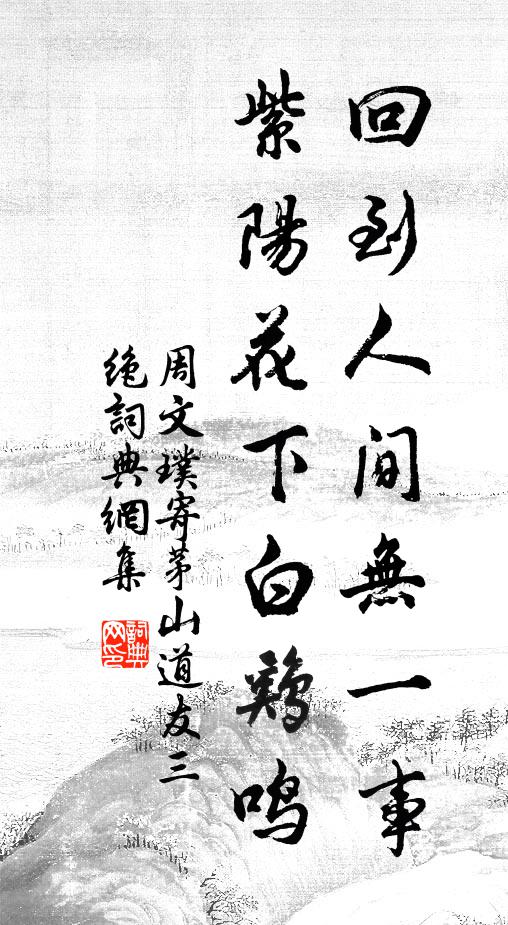 回到人間無一事
紫陽花下白鷄鳴
周文璞寄茅山道友三
絶詞典網集
詞典
网印